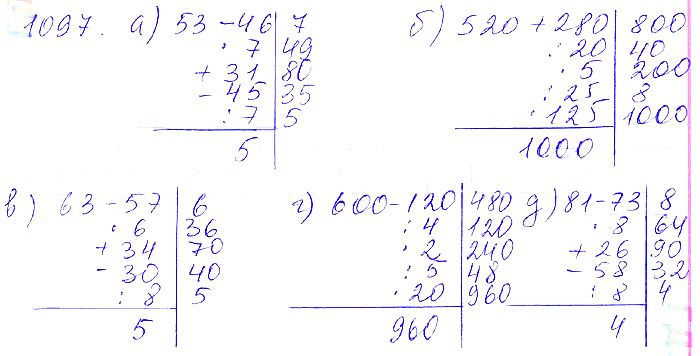 1097. а) 53 - 46 | 7
· 7 | 49
+ 31 | 80
- 45 | 35
: 7 | 5
5
б) 520 + 280 | 800
: 20 | 40
· 5 | 200
: 25 | 8
· 125 | 1000
1000
в) 63 - 57 | 6
· 6 | 36
+ 34 | 70
- 30 | 40
: 8 | 5
5
г) 600 - 120 | 480
: 4 | 120
· 2 | 240
: 5 | 48
· 20 | 960
960
д) 81 - 73 | 8
· 8 | 64
+ 26 | 90
- 58 | 32
: 8 | 4
4